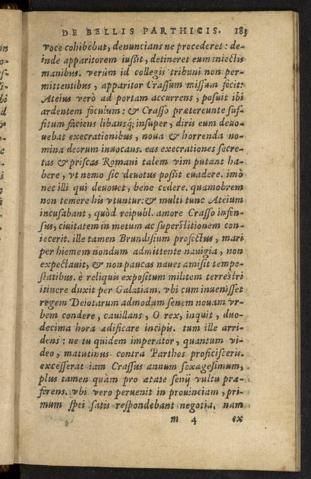 DE BELLIS PARTHICIS. 183
voce cohibebat, denuncians ne procederet: de-
inde apparitorem iussit, detineret eum iniectis
manibus. verùm id collegis tribuni non per-
mittentibus, apparitor Crassum missum fecit:
Ateius verò ad portam accurrens, posuit ibi
ardentem foculum: & Crasso prætereunte suf-
fitum faciens libansq; insuper, diris eum deuo-
uebat execrationibus, noua & horrenda no-
mina deorum inuocans. eas execrationes secre-
tas & priscas Romani talem vim putant ha-
bere, vt nemo sic deuotus possit euadere. imò
nec illi qui deuouet, bene cedere. quamobrem
non temere his vtuntur: & multi tunc Ateium
incusabant, quòd reipubl. amore Crasso infen-
sus, ciuitatem in metum ac superstitionem con-
iecerit. ille tamen Brundisium profectus, mari
per hiemem nondum admittente nauigia, non
expectauit, & non paucas naues amisit tempe-
statibus. è reliquis expositum militem terrestri
itinere duxit per Galatiam. vbi cum inuenisset
regem Deiotarum admodum senem nouam vr-
bem condere, cauillans, O rex, inquit, duo-
decima hora ædificare incipis. tum ille arri-
dens: ne tu quidem imperator, quantum vi-
deo, matutinus contra Parthos proficisceris.
excesserat iam Crassus annum sexagesimum,
plus tamen quàm pro ætate senij vultu præ-
ferens. vbi vero peruenit in prouinciam, pri-
mum spei satis respondebant negotia. nam
m 4 ex